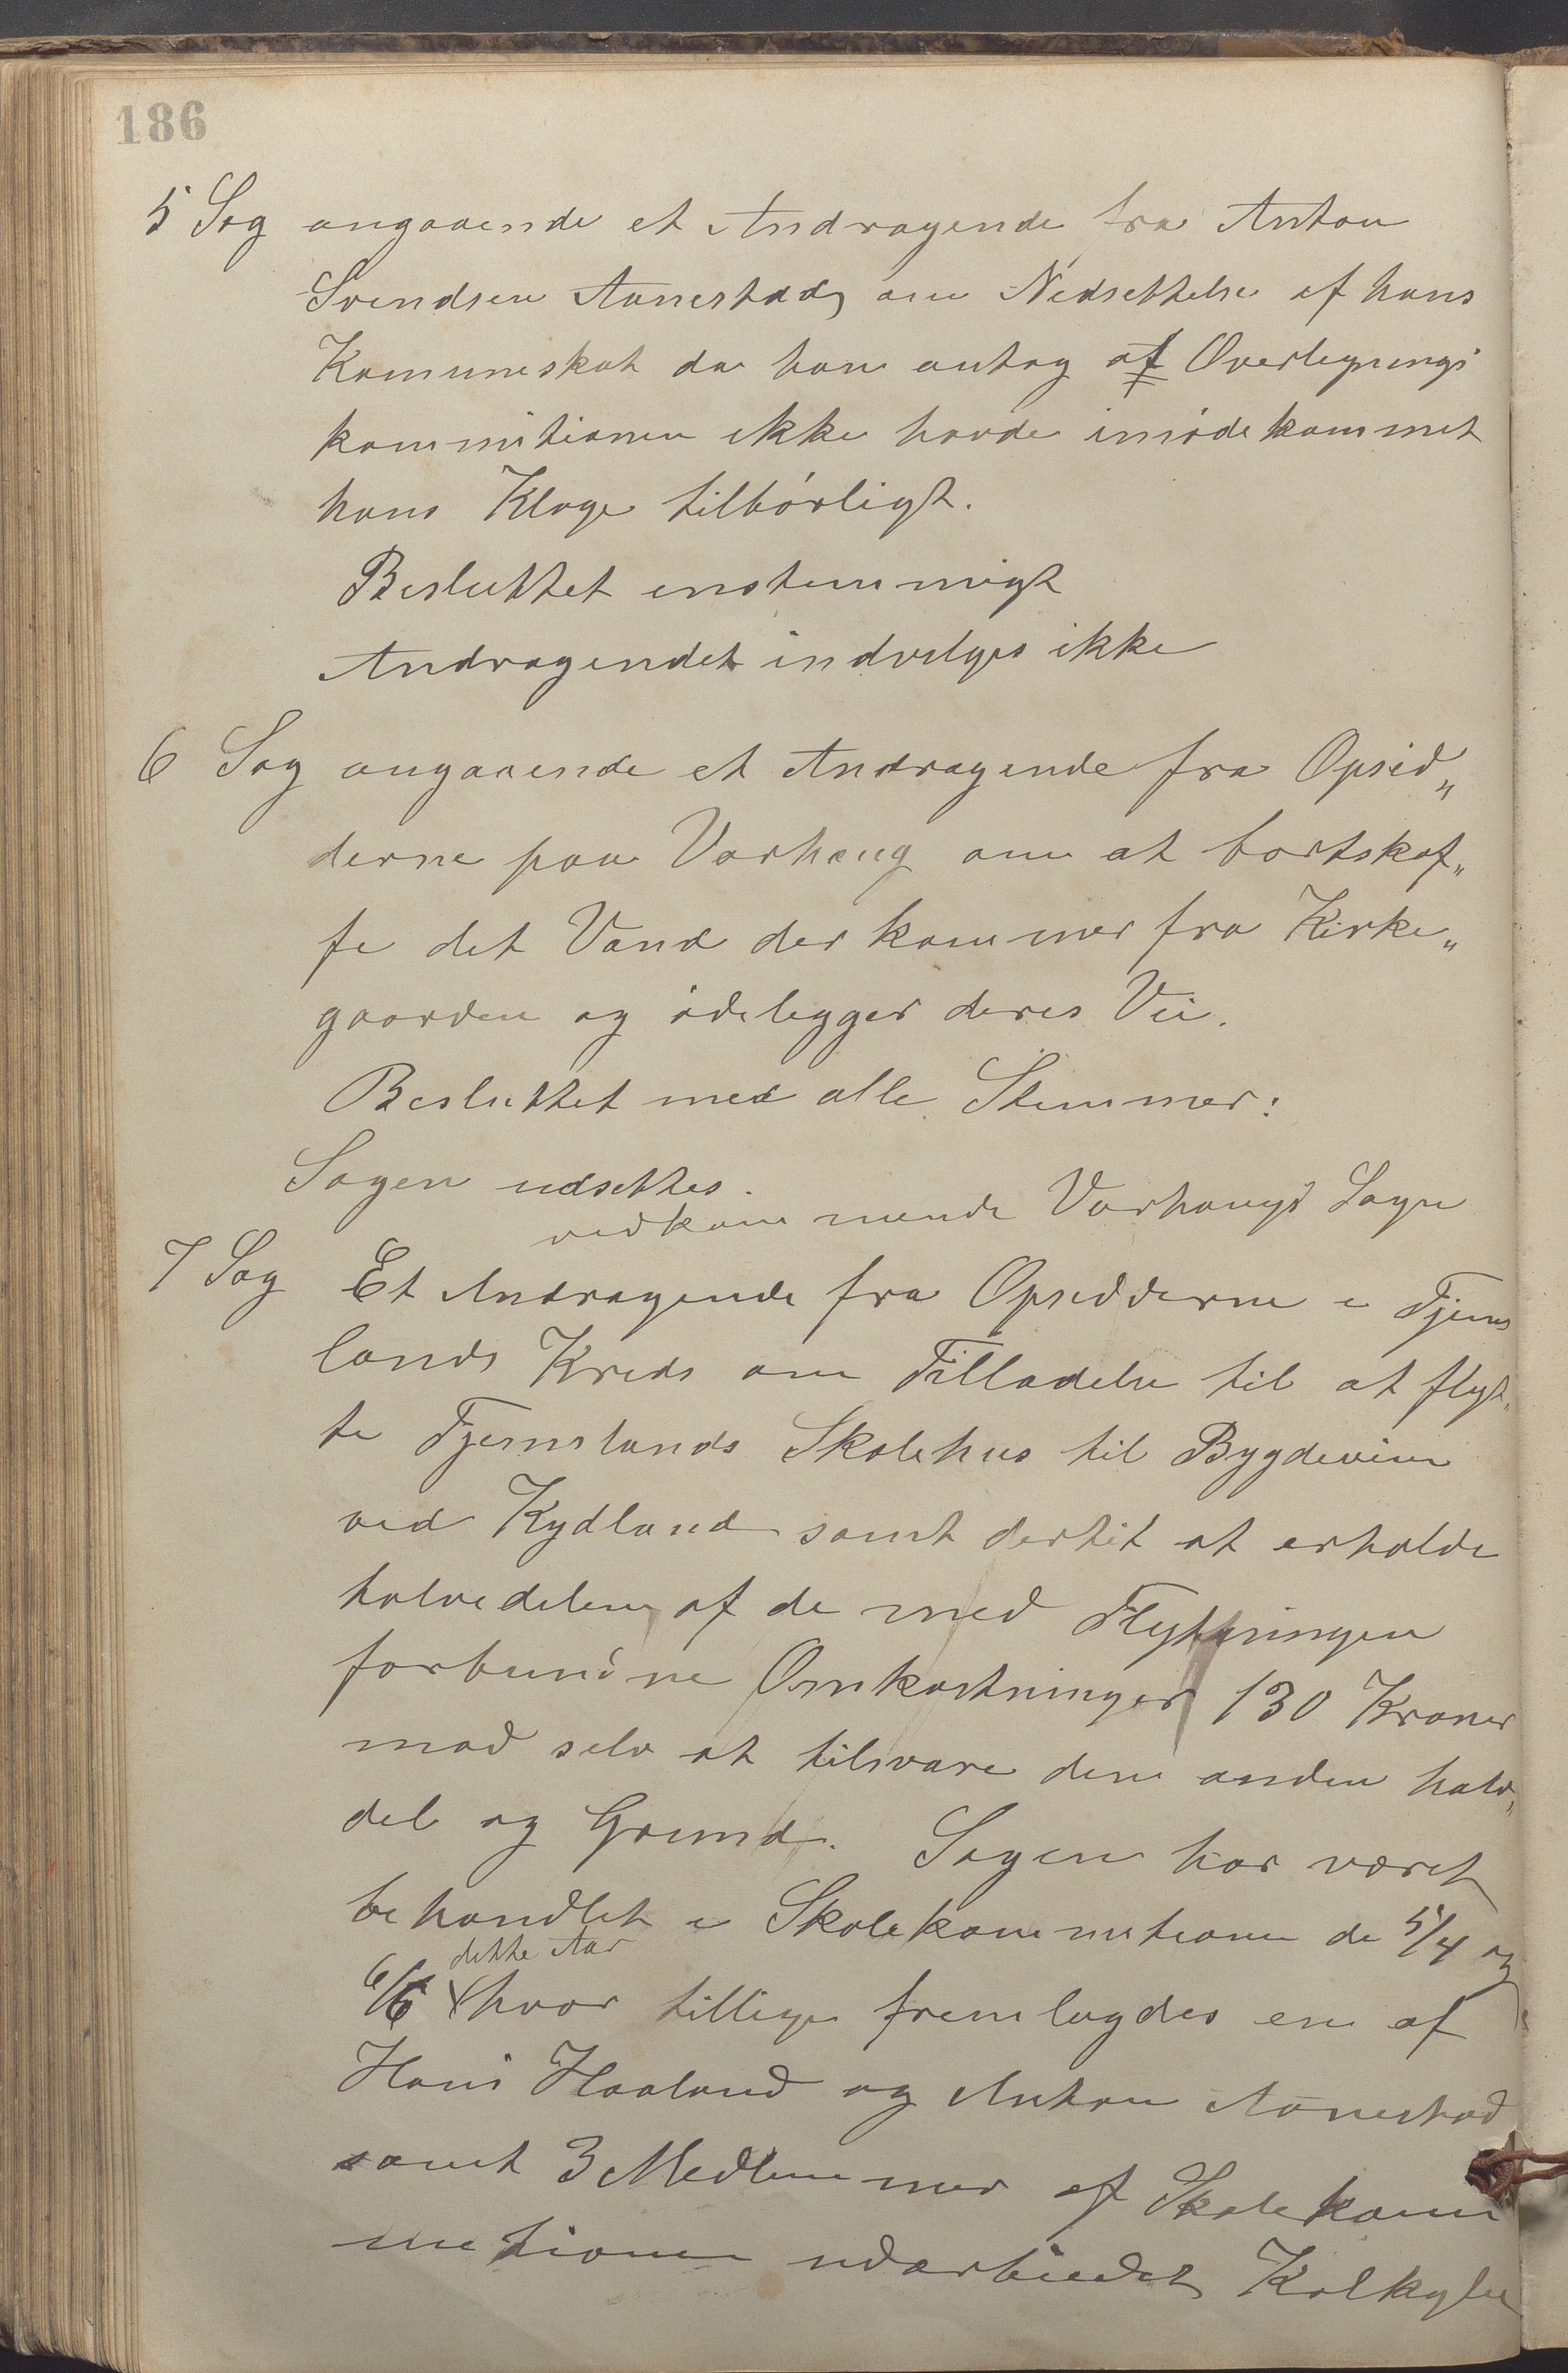 186
5 Sag angaaende et Andragende fra Anton
Svendsen Aanestad, om Nedsettelse af hans
Komuneskat da han antog at Overlegnings
kommitionen ikke havde imødekommet
hans Klage tilbørligt.
Besluttet enstemmigt
Andragendet indvelges ikke
6 Sag angaaende et Andragende fra Opsid„
derne paa Varhaug om at bortskaf„
fe det Vand der kommer fra Kirke„
gaarden og ødelegger deres Vei.
Besluttet med alle Stemmer:
Sagen udsettes.
vedkommende Varhaugs Sogn
7 Sag Et Andragende fra Opsidderne i Tjems
lands Kreds om Tilladelse til at flyt„
te Tjemslands Skolehus til Bygdeveien
ved Kydland samt dertil at erholde
halvedelen af de med Flytningen
forbundne Omkostninger 130 Kroner
mod selv at tilsvare den anden halv„
del og Grund. Sagen har været
behandlet i Skolekommitionen de 5/4 og
dette Aar
6/6 hvor tillige fremlagdes en af
Hans Haaland og Anton Aanestad
samt 3 Medlemmer af Skolekom
mitionen udarbeidet Kalkyle